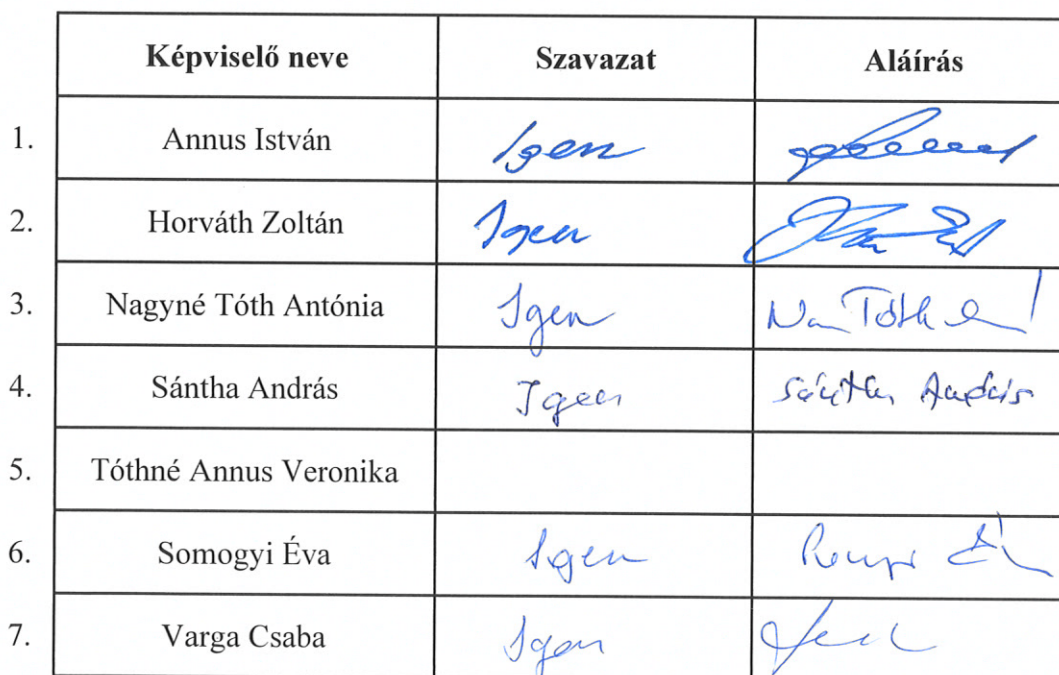 Képviselő neve Szavazat Aláírás
1. Annus István Igen
2. Horváth Zoltán Igen
3. Nagyné Tóth Antónia Igen Tóth
4. Sántha András Igen Sántha András
5. Tóthné Annus Veronika
6. Somogyi Éva Igen
7. Varga Csaba Igen